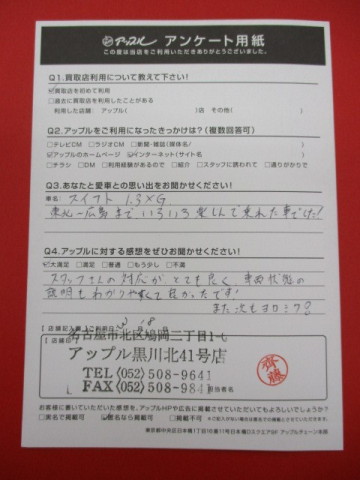 アップル アンケート用紙
この度は当店をご利用いただきありがとうございました。
Q1.買取店利用について教えて下さい!
☑買取店を初めて利用
□過去に買取店を利用したことがある
利用した店舗: アップル( )店 その他( )
Q2.アップルをご利用になったきっかけは?(複数回答可)
□テレビCM □ラジオCM □新聞・雑誌(媒体名/ )
☑アップルのホームページ ☑インターネット(サイト名 )
□チラシ □DM □利用経験があるので □紹介 □スタッフに誘われて □通りがかりで
Q3.あなたと愛車との思い出をお聞かせください!
車名: スイフト 1.3XG
東北〜広島まで いろいろ楽しんで来れた車でした!
Q4.アップルに対する感想をぜひお聞かせください!
☑大満足 □満足 □普通 □もう少し □不満
スタッフさんの対応がとても良く 車両状態の
説明もわかりやすくて良かったです!
また次もヨロシク?
【店舗記入欄】ご利用日
【店舗印】
名古屋市北区鳩岡二丁目1-
アップル黒川北41号店
TEL(052)508-9641
FAX(052)508-984
担当者名
齊藤
お客様に書いていただいた感想を、アップルHPや広告に掲載させていただいてもよろしいでしょうか?
□実名で掲載可 ☑匿名なら掲載可 □掲載不可